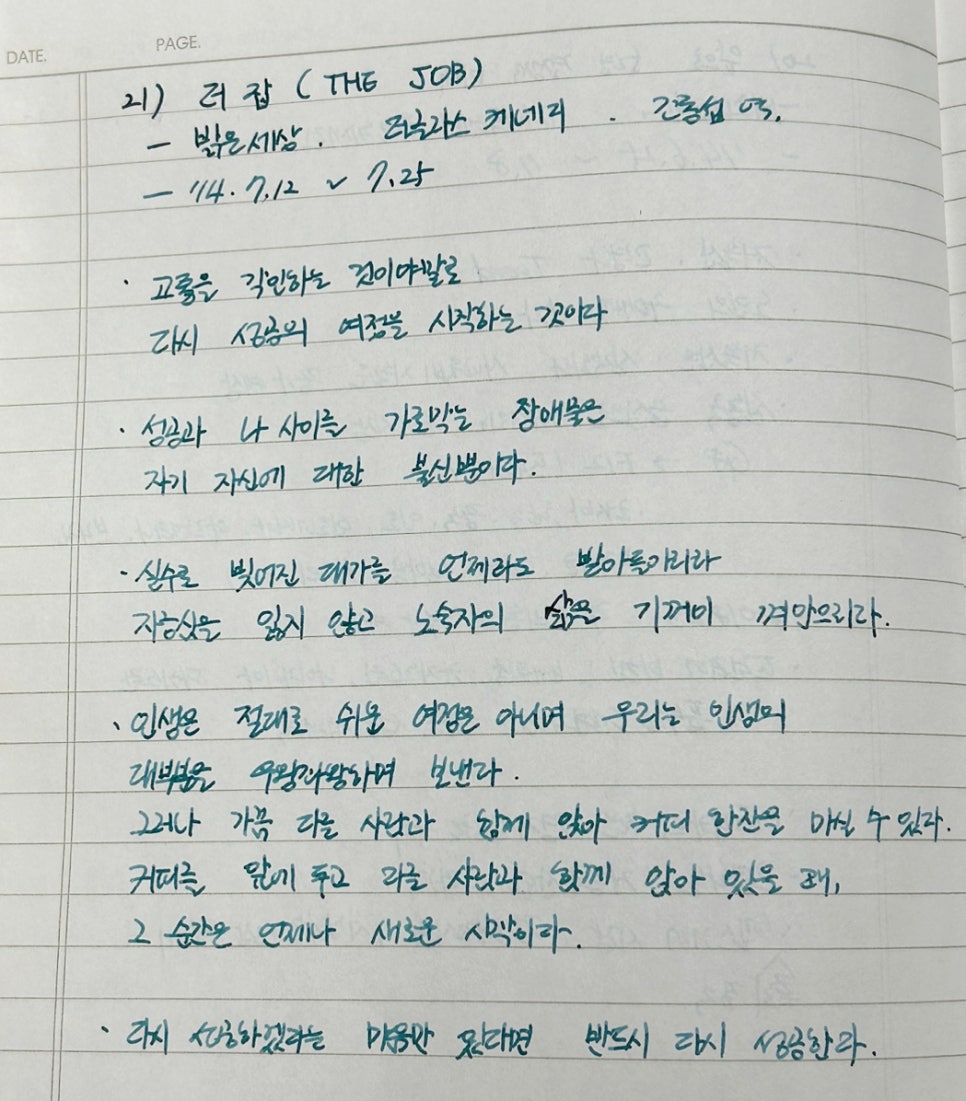 DATE. PAGE.
21) 더 잡 (THE JOB)
- 밝은세상. 더글라스 케네디. 조동섭 역.
- '14.7.12 ~ 7.25
· 교훈을 각인하는 것이야말로
다시 성공의 여정을 시작하는 것이다
· 성공과 나 사이를 가로막는 장애물은
자기 자신에 대한 불신뿐이다.
· 실수로 빚어진 대가를 언제라도 받아들이리라
자긍심을 잃지 않고 노숙자의 삶을 기꺼이 껴안으리라.
· 인생은 절대로 쉬운 여정은 아니며 우리는 인생의
대부분을 우왕좌왕하며 보낸다.
그러나 가끔 다른 사람과 함께 앉아 커피 한잔을 마실 수 있다.
커피를 앞에 두고 다른 사람과 함께 앉아 있을 때,
그 순간은 언제나 새로운 시작이다.
· 다시 성공하겠다는 마음만 있다면 반드시 다시 성공한다.